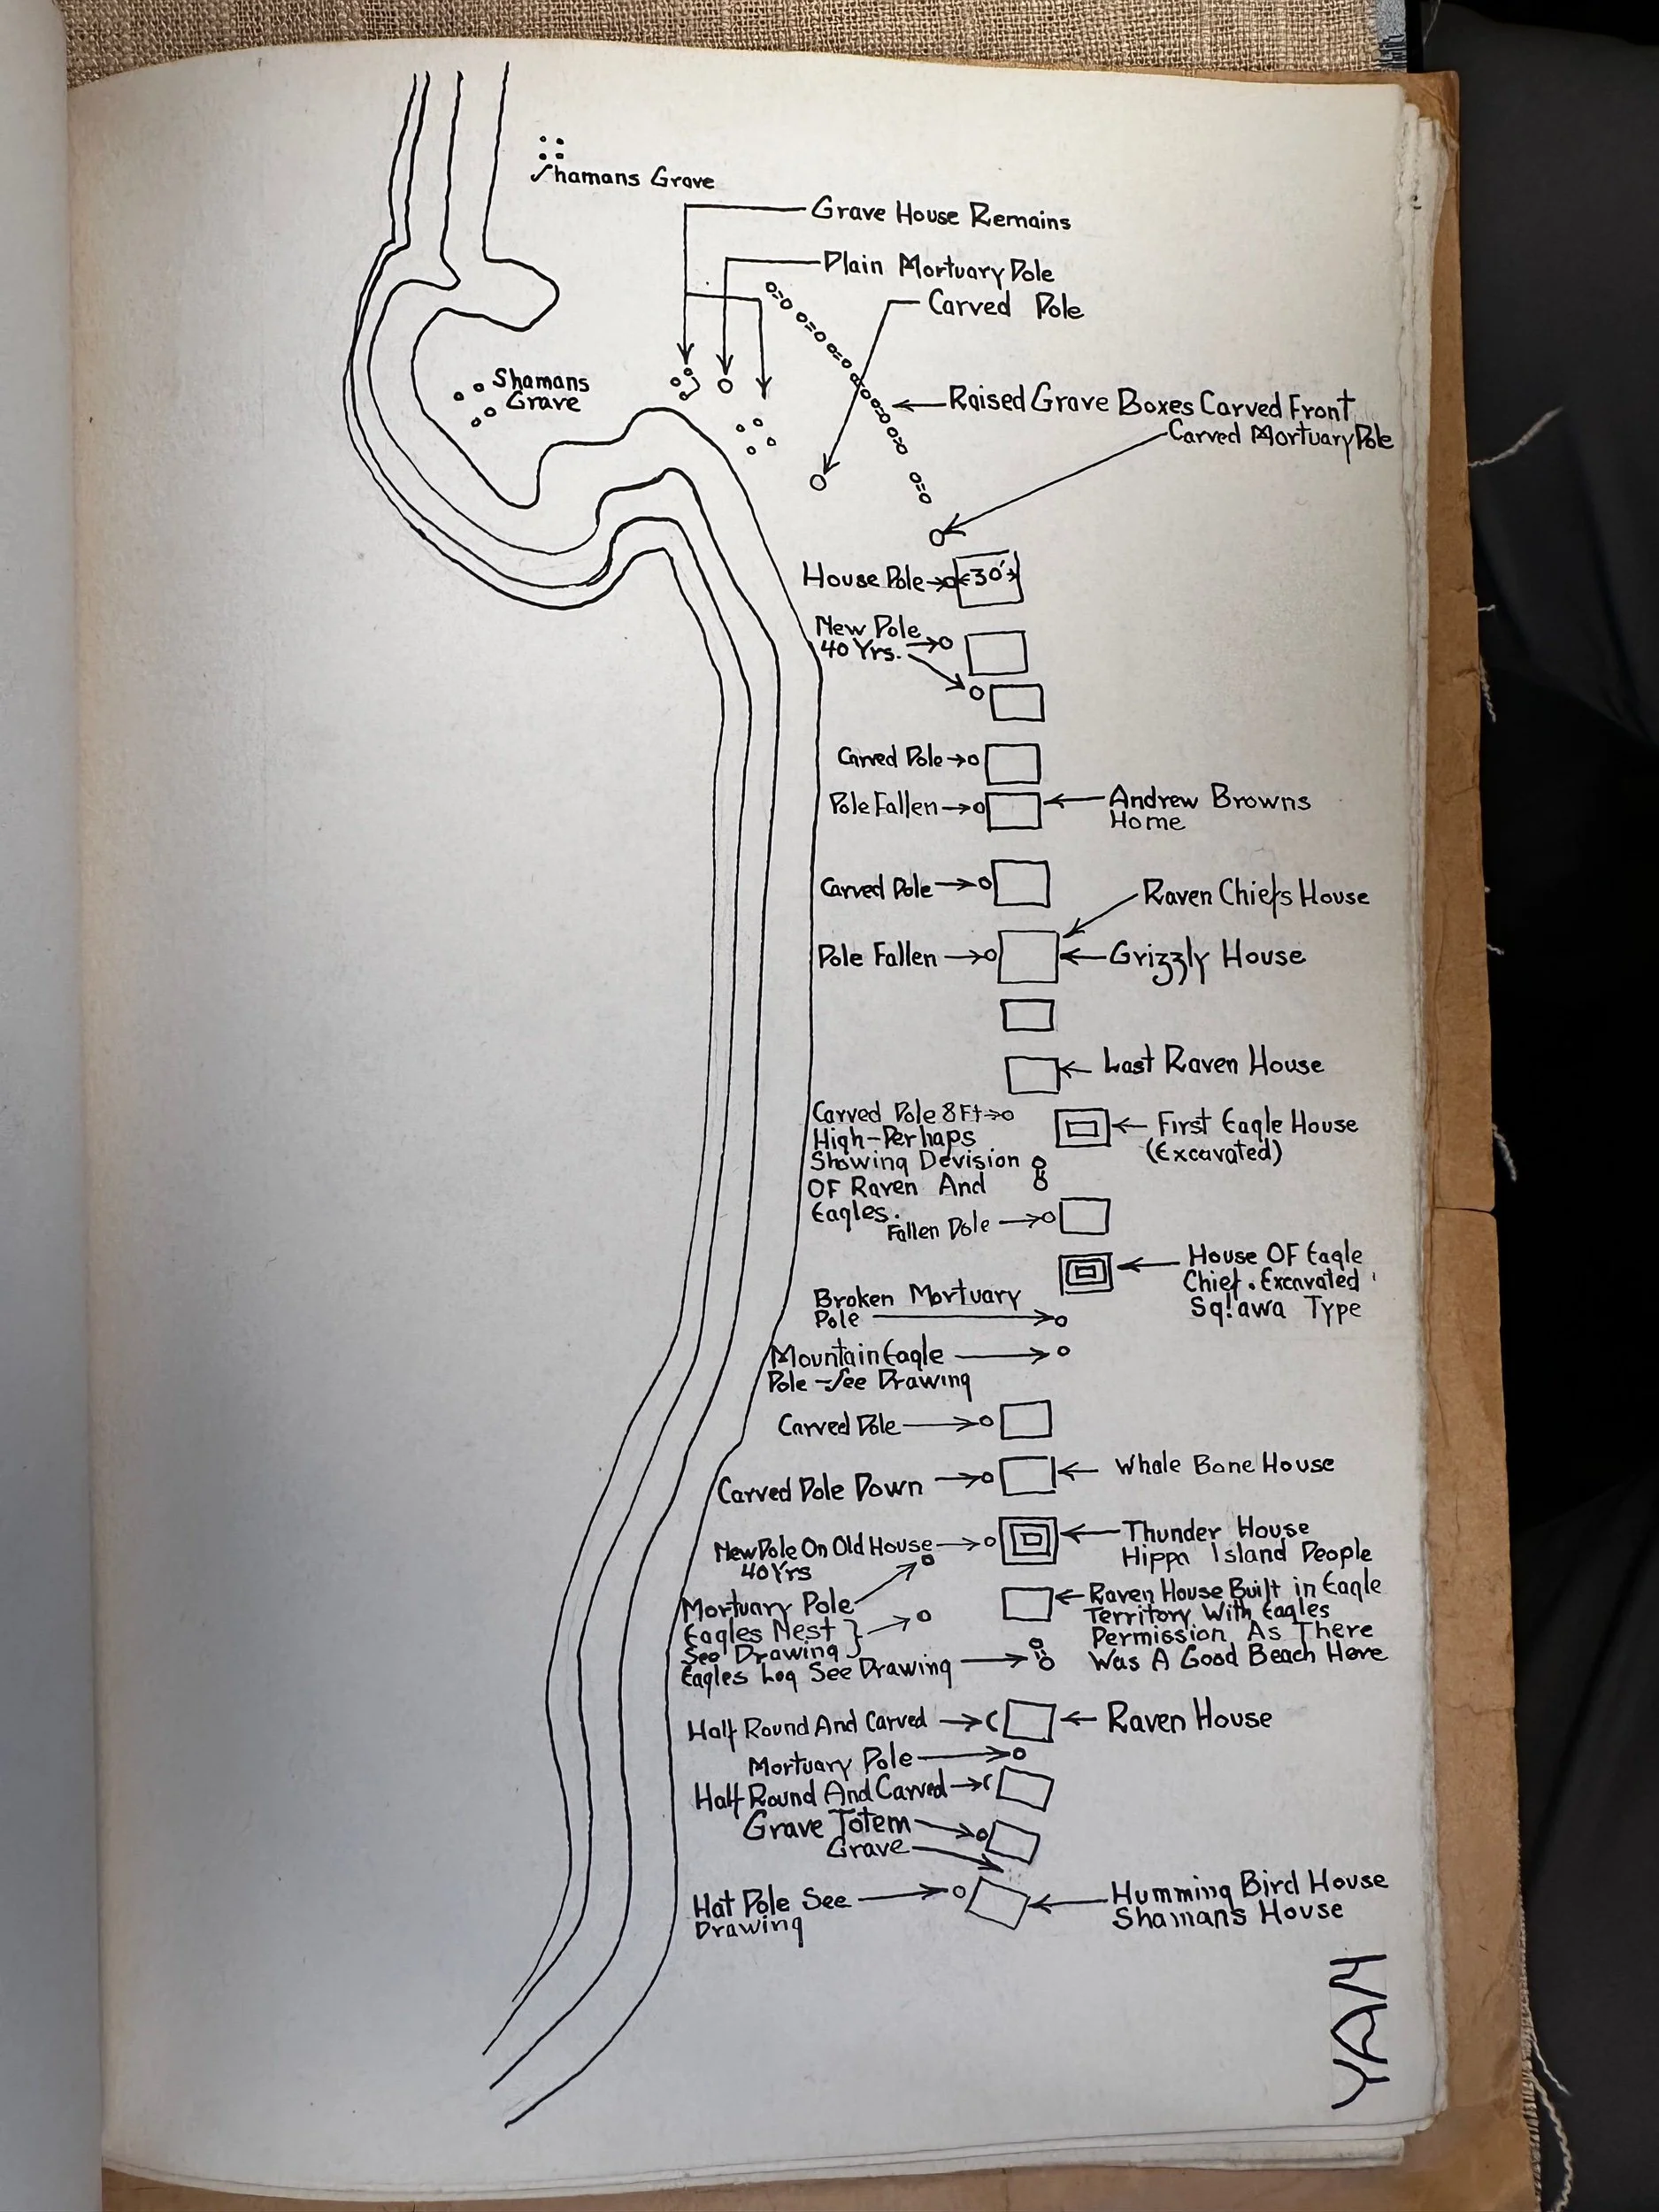 Shamans Grave
Grave House Remains
Plain Mortuary Pole
Carved Pole
Shamans
Grave
Raised Grave Boxes Carved Front
Carved Mortuary Pole
House Pole
30'
New Pole
40 Yrs.
Carved Pole
Pole Fallen
Andrew Browns
Home
Carved Pole
Raven Chiefs House
Pole Fallen
Grizzly House
Last Raven House
Carved Pole 8 Ft
High-Perhaps
Showing Devision
OF Raven And
Eagles.
First Eagle House
(Excavated)
Fallen Pole
House OF Eagle
Chief. Excavated
Sq!awa Type
Broken Mortuary
Pole
Mountain Eagle
Pole - See Drawing
Carved Pole
Carved Pole Down
Whale Bone House
New Pole On Old House
40 Yrs
Thunder House
Hippa Island People
Mortuary Pole
Eagles Nest
See Drawing
Raven House Built in Eagle
Territory With Eagles
Permission As There
Was A Good Beach Here
Eagles Log See Drawing
Half Round And Carved
Raven House
Mortuary Pole
Half Round And Carved
Grave Totem
Grave
Hat Pole See
Drawing
Humming Bird House
Shamans House
YAN